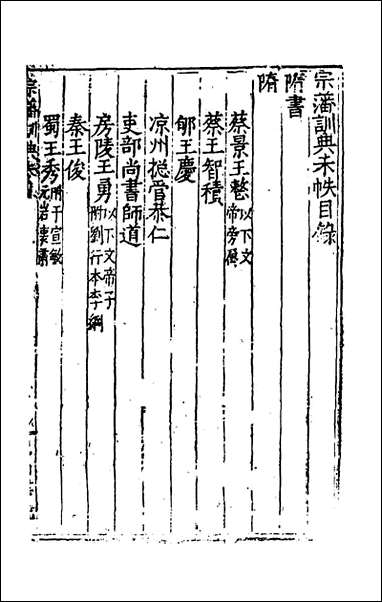 宗藩訓典未帙目錄
隋書
隋
蔡景王整以下文帝旁屬
蔡王智積
郇王慶
凉州捴管恭仁
吏部尚書師道
房陵王勇以下文帝子附劉行本李綱
秦王俊
蜀王秀附于宣敏元岩
宗藩訓典